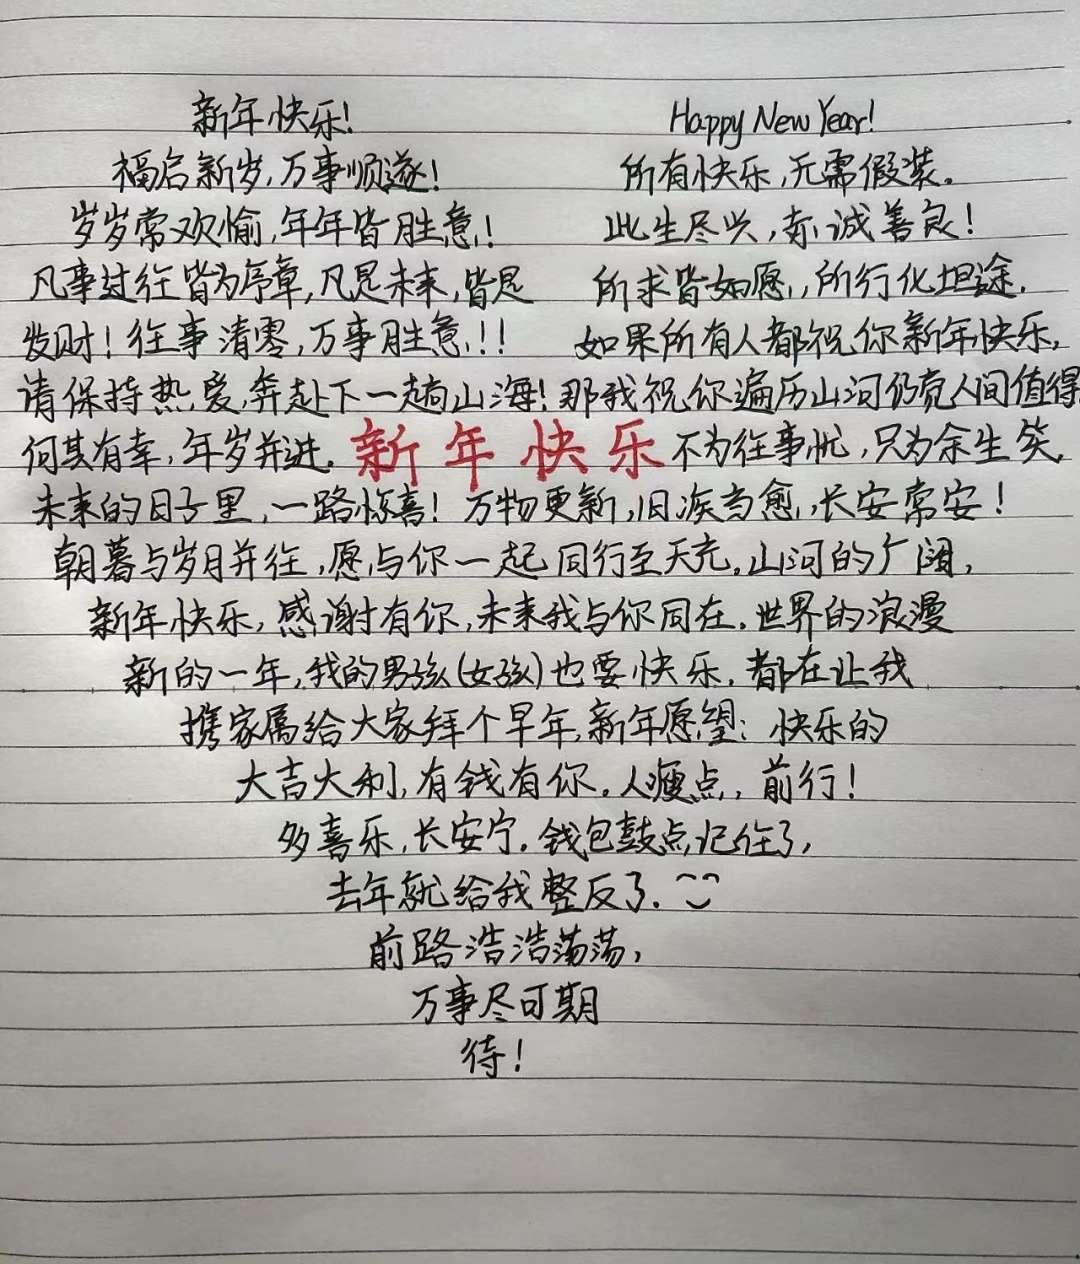 新年快乐!
Happy New Year!
福启新岁,万事顺遂!
所有快乐,无需假装。
岁岁常欢愉,年年皆胜意!
此生尽兴,赤诚善良!
凡事过往皆为序章,凡是未来,皆是
所求皆如愿,所行化坦途.
发财!往事清零,万事胜意!!
如果所有人都祝你新年快乐,
请保持热爱,奔赴下一趟山海!那我祝你遍历山河仍觉人间值得
何其有幸,年岁并进.新年快乐不为往事忧,只为余生笑.
未来的日子里,一路惊喜!万物更新,旧疾当愈,长安常安!
朝暮与岁月并往,愿与你一起同行至天光。山河的广阔,
新年快乐,感谢有你,未来我与你同在.世界的浪漫
新的一年,我的男孩(女孩)也要快乐.都在让我
携家属给大家拜个早年,新年愿望:快乐的
大吉大利,有钱有你。人瘦点,前行!
多喜乐,长安宁。钱包鼓点,记住了,
去年就给我整反了.
前路浩浩荡荡,
万事尽可期
待!